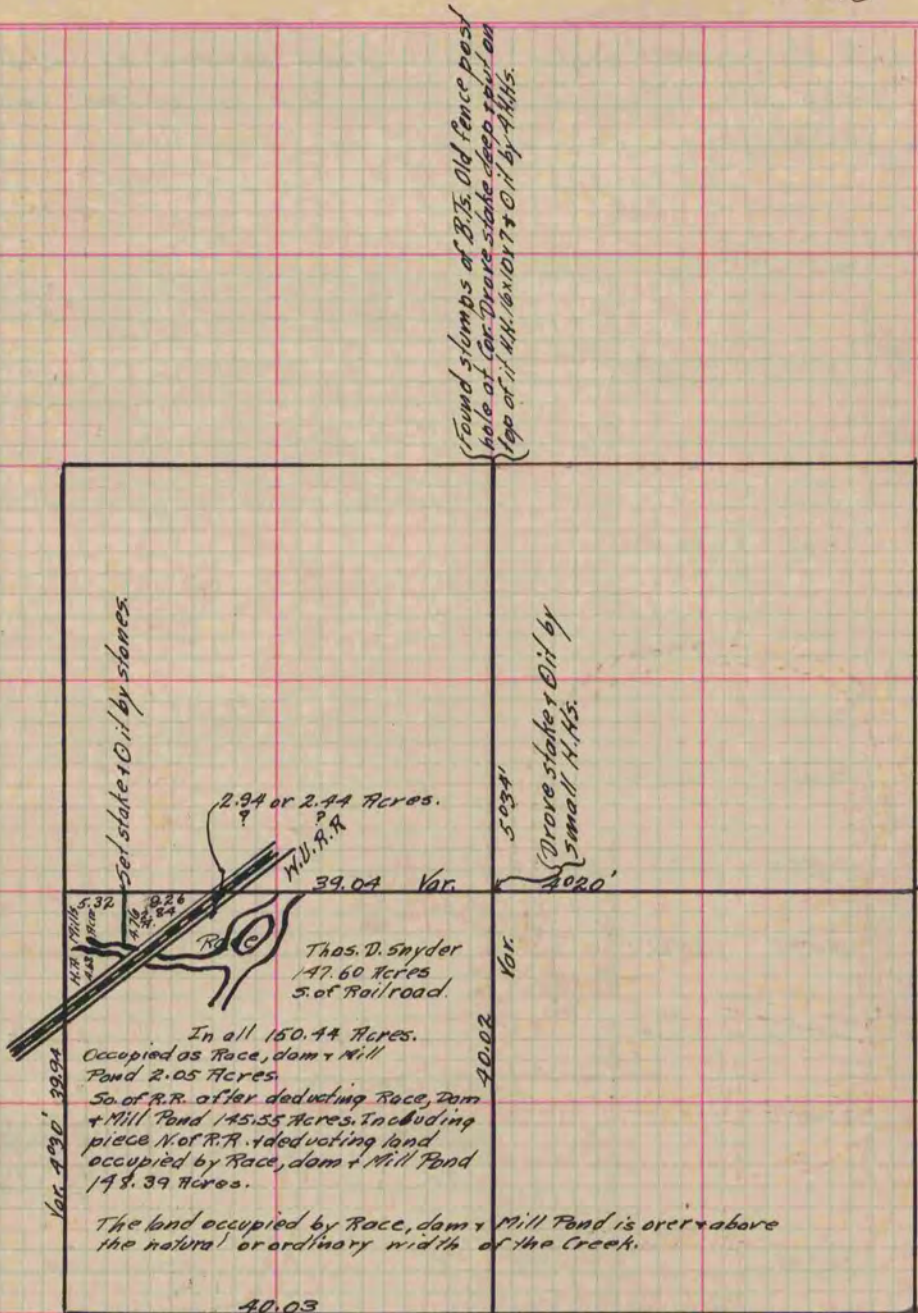 (Found stumps of B.Ts. Old fence post
hole at Cor. Drove stake deep & put on
top of it N.H. 16x10x7 & O it by 4 N.Hs.
Set stake & O it by stones.
2.94 or 2.44 Acres.
? ?
W.U.R.R
(Drove stake & O it by
small N.Hs.
5°34'
39.04 Var. 4°20'
5.32
9.26
4.76
2.84
Mills
Acre
Race
Thos. D. Snyder
147.60 Acres
S. of Railroad.
Var.
40.02
In all 150.44 Acres.
Occupied as Race, dam & Mill
Pond 2.05 Acres.
So. of R.R. after deducting Race, Dam
& Mill Pond 145.55 Acres. Including
piece N. of R.R. & deducting land
occupied by Race, dam & Mill Pond
148.39 Acres.
Var. 4°30' 39.94
The land occupied by Race, dam & Mill Pond is over & above
the natural or ordinary width of the Creek.
40.03